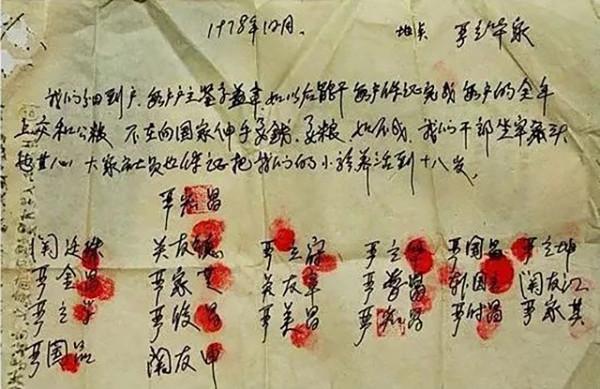 1978年12月. 地点 严立华家
我们分田到户 每户户主签字盖章 如以后能干 每户保证完成每户的全年
上交和公粮 不在向国家伸手要钱 要粮 如不成 我们干部坐牢杀头
也甘心 大家社员也保证把我们的小孩养活到十八岁
严宏昌
关廷珠 关友德 严立富 严立华 严国昌 严立坤
严金昌 严家芝 关友章 严学昌 韩国云 关友江
严立学 严俊昌 严美昌 严宏昌 严付昌 严家其
严国品 关友申